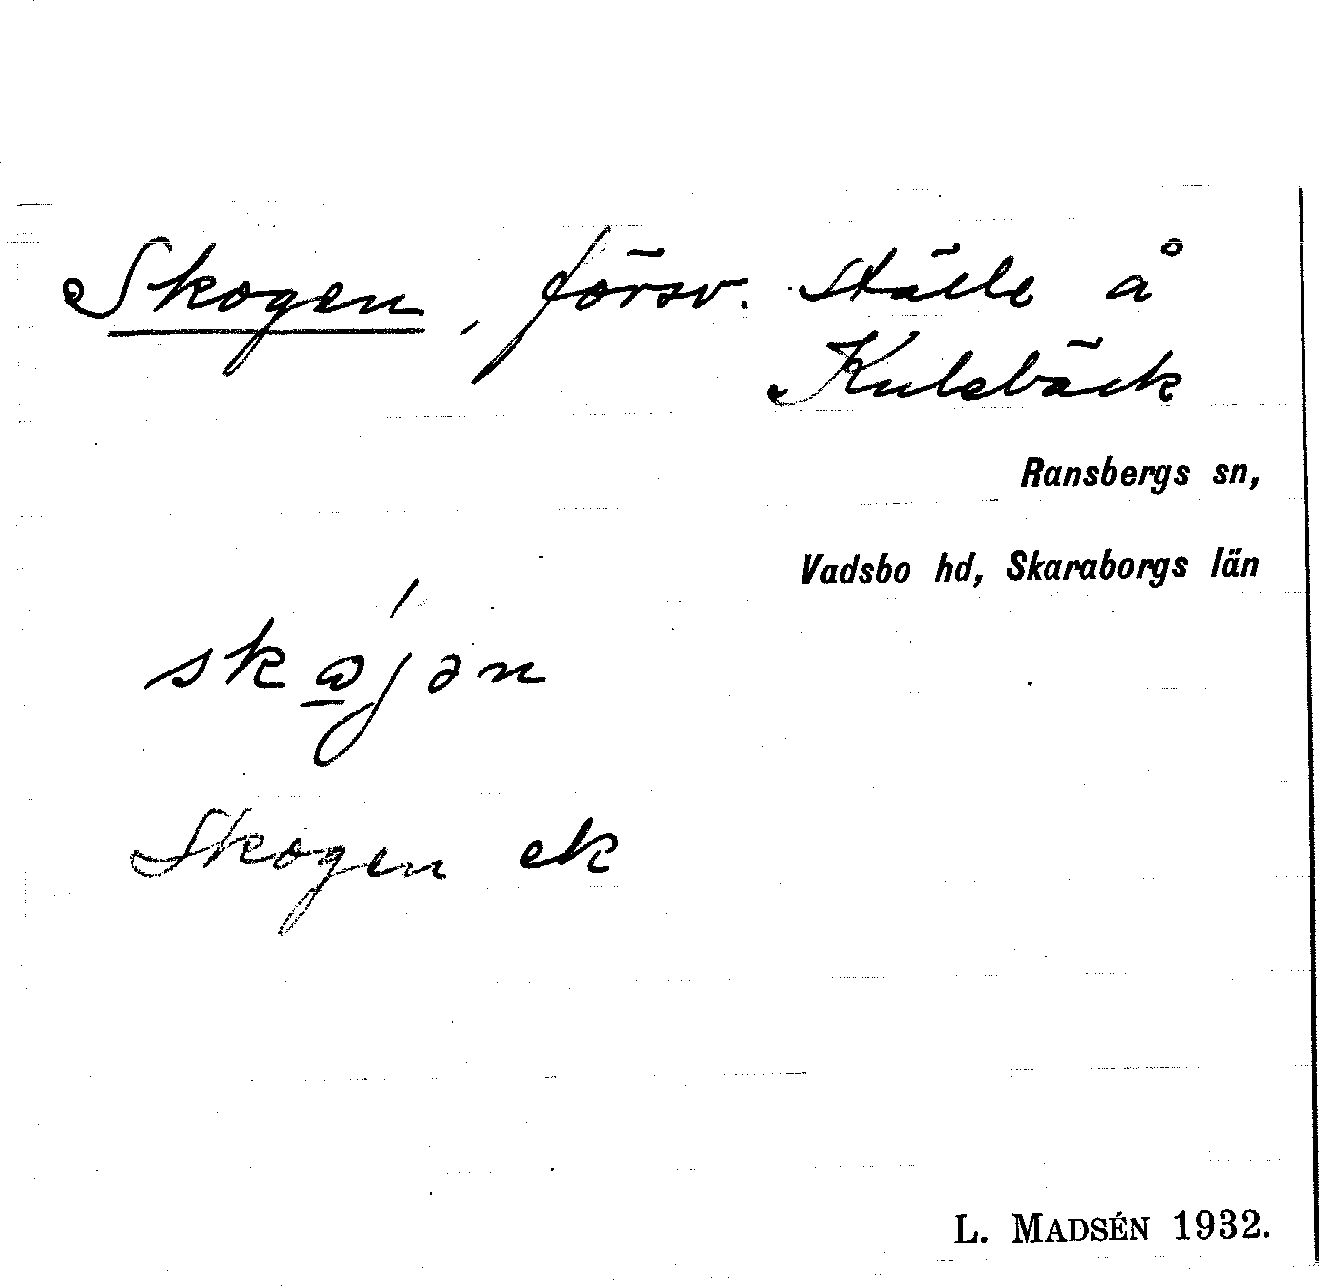 Skogen, försv. ställe å
Kulebäck
Ransbergs sn,
Vadsbo hd, Skaraborgs län
Skogen ek
L. MADSÉN 1932.